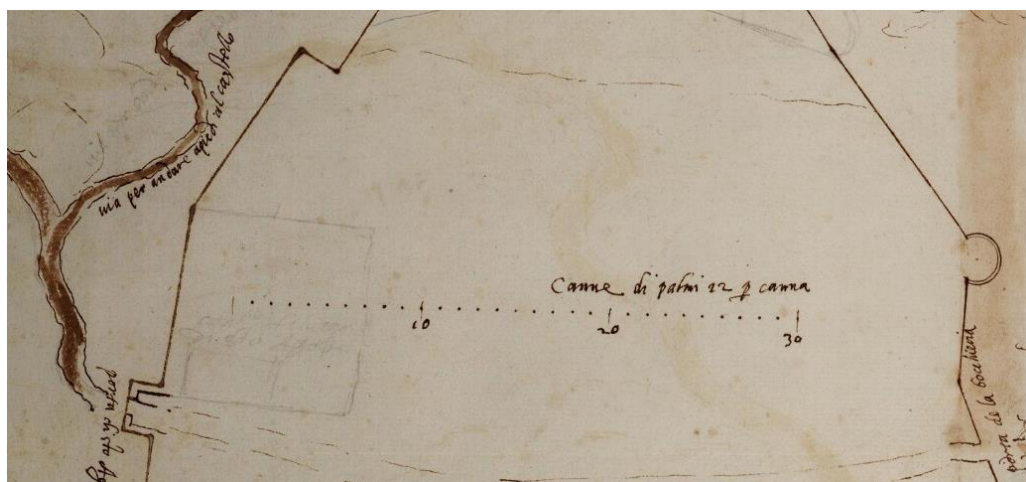 uia per andare apiedi al castello
Canne di palmi 12 p canna
10
20
30
porta de la bocchiera
porta di